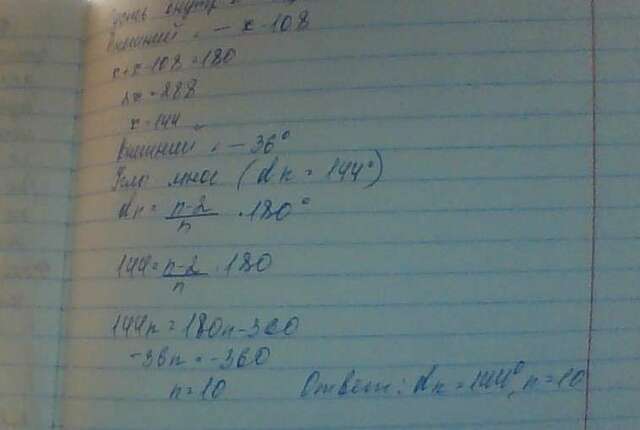 внутр
Внешний - x-108
x+x-108=180
2x=288
x=144
Внешний - 36°
(αn = 144°)
αn = n-2/n · 180°
144 = n-2/n · 180
144n = 180n-360
-36n = -360
n=10 Ответ: αn = 144°, n=10